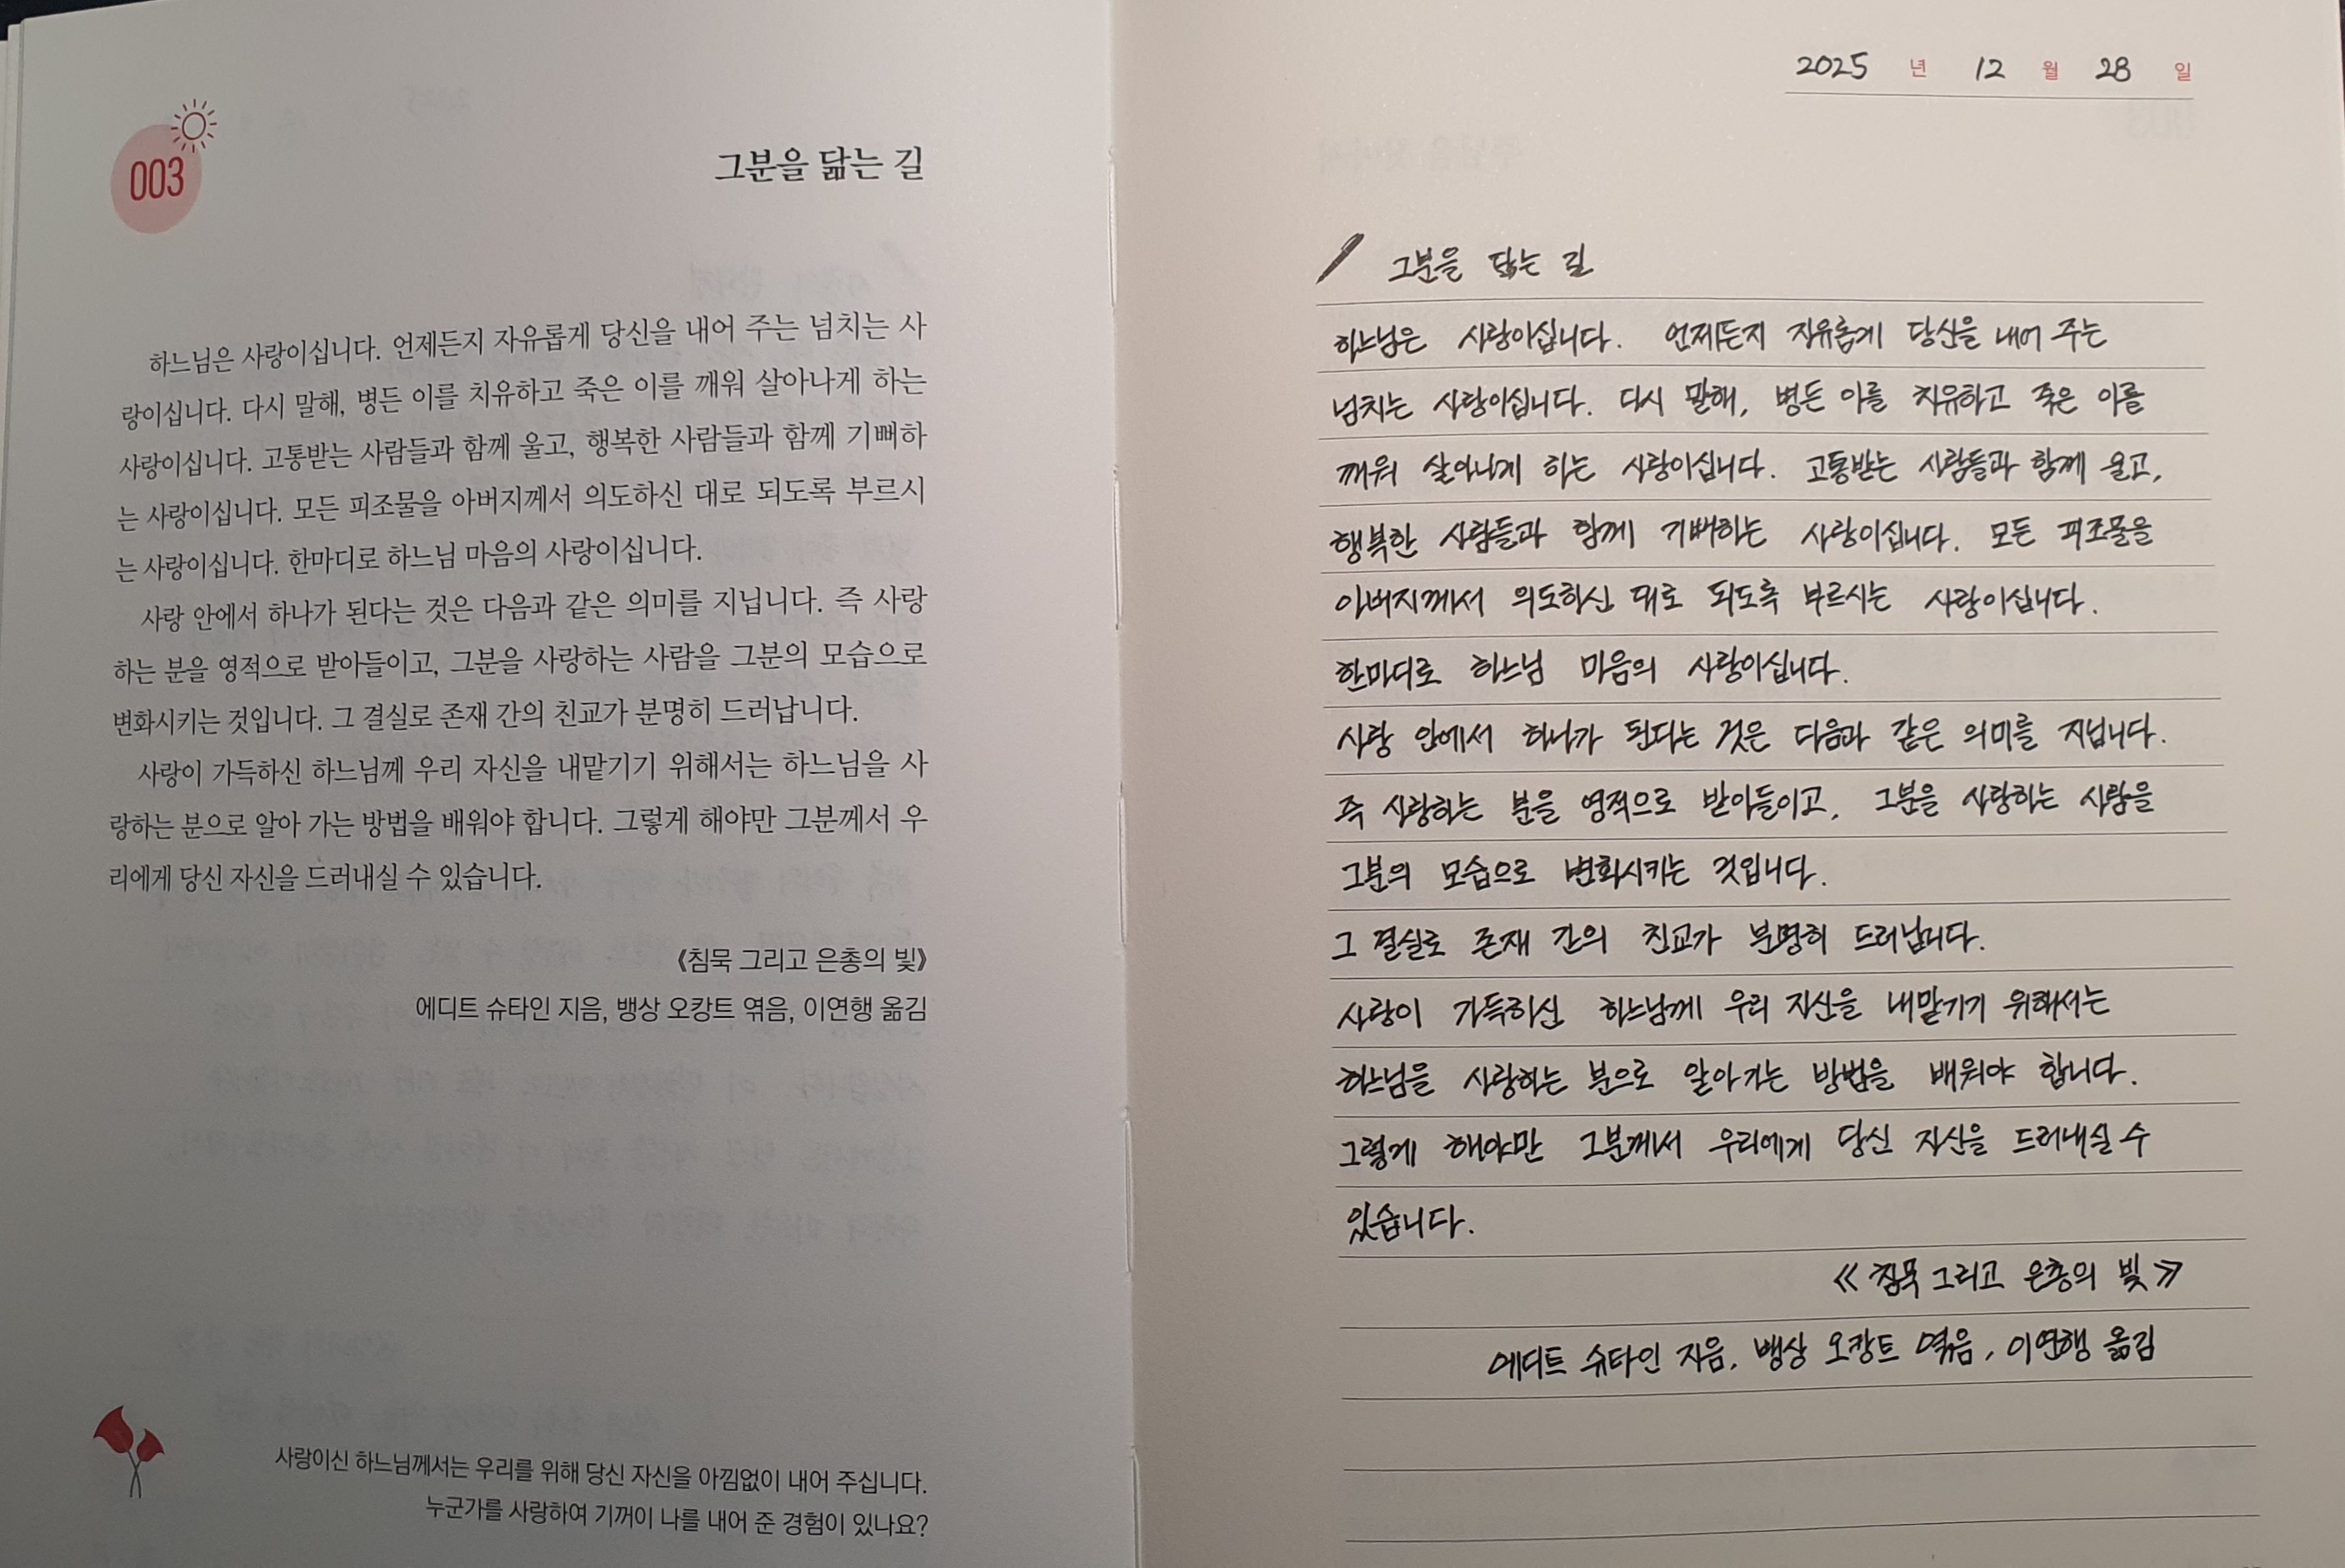 003
그분을 닮는 길
하느님은 사랑이십니다. 언제든지 자유롭게 당신을 내어 주는 넘치는 사
랑이십니다. 다시 말해, 병든 이를 치유하고 죽은 이를 깨워 살아나게 하는
사랑이십니다. 고통받는 사람들과 함께 울고, 행복한 사람들과 함께 기뻐하
는 사랑이십니다. 모든 피조물을 아버지께서 의도하신 대로 되도록 부르시
는 사랑이십니다. 한마디로 하느님 마음의 사랑이십니다.
사랑 안에서 하나가 된다는 것은 다음과 같은 의미를 지닙니다. 즉 사랑
하는 분을 영적으로 받아들이고, 그분을 사랑하는 사람을 그분의 모습으로
변화시키는 것입니다. 그 결실로 존재 간의 친교가 분명히 드러납니다.
사랑이 가득하신 하느님께 우리 자신을 내맡기기 위해서는 하느님을 사
랑하는 분으로 알아 가는 방법을 배워야 합니다. 그렇게 해야만 그분께서 우
리에게 당신 자신을 드러내실 수 있습니다.
《침묵 그리고 은총의 빛》
에디트 슈타인 지음, 뱅상 오캉트 엮음, 이연행 옮김
사랑이신 하느님께서는 우리를 위해 당신 자신을 아낌없이 내어 주십니다.
누군가를 사랑하여 기꺼이 나를 내어 준 경험이 있나요?
2025 년 12 월 28 일
그분을 닮는 길
하느님은 사랑이십니다. 언제든지 자유롭게 당신을 내어 주는
넘치는 사랑이십니다. 다시 말해, 병든 이를 치유하고 죽은 이를
깨워 살아나게 하는 사랑이십니다. 고통받는 사람들과 함께 울고,
행복한 사람들과 함께 기뻐하는 사랑이십니다. 모든 피조물을
아버지께서 의도하신 대로 되도록 부르시는 사랑이십니다.
한마디로 하느님 마음의 사랑이십니다.
사랑 안에서 하나가 된다는 것은 다음과 같은 의미를 지닙니다.
즉 사랑하는 분을 영적으로 받아들이고, 그분을 사랑하는 사람을
그분의 모습으로 변화시키는 것입니다.
그 결실로 존재 간의 친교가 분명히 드러납니다.
사랑이 가득하신 하느님께 우리 자신을 내맡기기 위해서는
하느님을 사랑하는 분으로 알아가는 방법을 배워야 합니다.
그렇게 해야만 그분께서 우리에게 당신 자신을 드러내실 수
있습니다.
≪침묵 그리고 은총의 빛≫
에디트 슈타인 지음, 뱅상 오캉트 엮음, 이연행 옮김